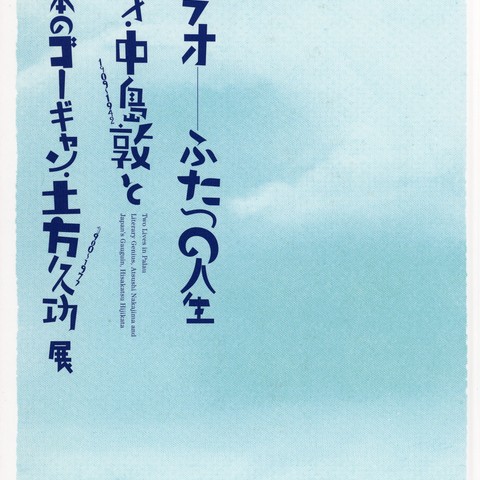 ラオ──ふたつの人生
才・中島敦と
1909-1942
本のゴーギャン・土方久功展
1900-1977
Two Lives in Palau
Literary Genius, Atsushi Nakajima and
Japan's Gauguin, Hisakatsu Hijikata